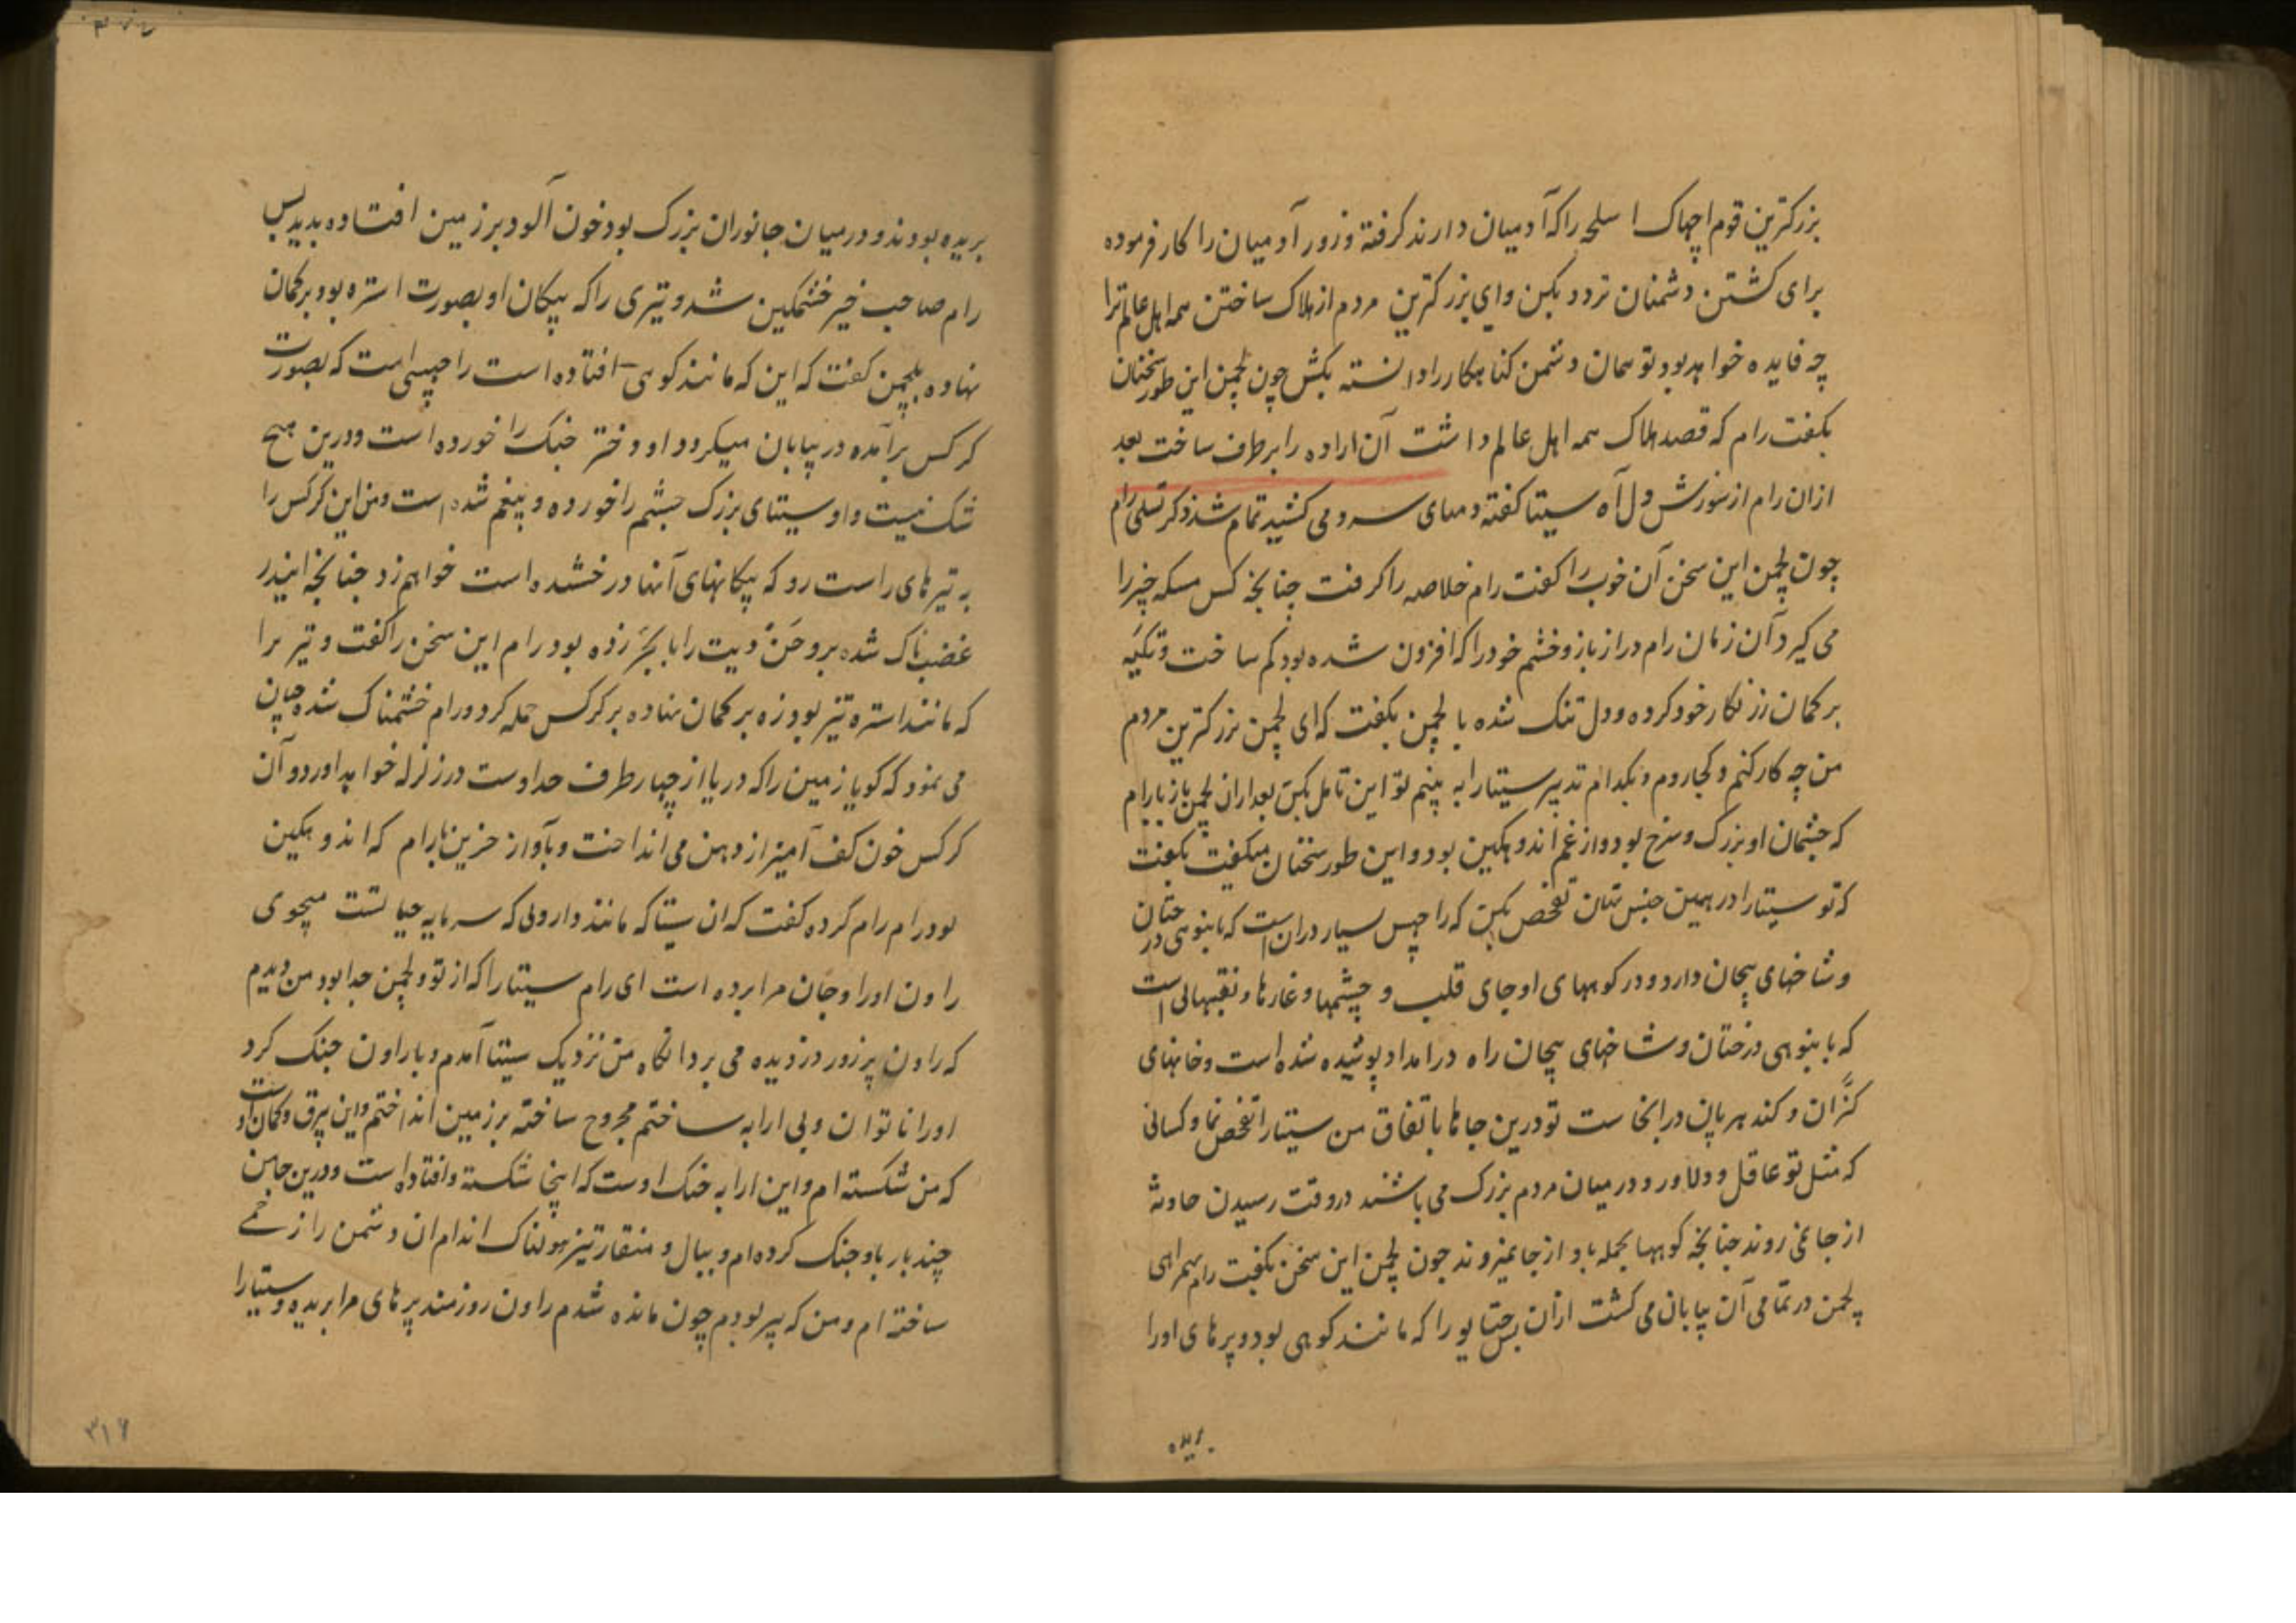 بزرکترین قوم اچهاک اسلحه را که آدمیان دارند کرفته و زور آدمیان را کار فرموده
برای کشتن دشمنان تردد بکن و ای بزرکترین مردم از هلاک ساختن همه اهل عالم ترا
چه فایده خواهد بود تو همان دشمن کناهکار را دانسته بکش چون لچمن این طور سخنان
بکفت رام که قصد هلاک همه اهل عالم داشت آن اراده را برطرف ساخت بعد
ازان رام از سوزش دل آه سیتا کفته دمهای سرد می کشید تمام شد ذکر تسلی رام
چون لچمن این سخن آن خوب را کفت رام خلاصه را کرفت چنانچه کس مسکه چیز را
می کیرد آن زمان رام دراز بازو خشم خود را که افزون شده بود کم ساخت و تکیه
بر کمان زرنکار خود کرده و دل تنک شده با لچمن بکفت که ای لچمن بزرکترین مردم
من چه کار کنم و کجا روم و بکدام تدبیر سیتا را به بینم تو این تامل بکن بعد ازان لچمن باز با رام
که چشمان او بزرک و سرخ بود و از غم اندوهکین بود و این طور سخنان میکفت بکفت
که تو سیتا را در همین تفحص بکن که راچهس بسیار دران است که بانبوهی درختان
و شاخهای پیچان دارد و در کوههای او جای قلب و چشمها و غارها و نقبهائی است
که بانبوهی درختان و شاخهای پیچان راه درامد او پوشیده شده است و خانهای
کنران و کندهربان درانجاست تو درین جاها باتفاق من سیتا را تفحص نما و کسانی
که مثل تو عاقل و دلاور و در میان مردم بزرک می باشند در وقت رسیدن حادثه
از جا نمی روند چنانچه کوهها بحمله باد از جا نمیروند چون لچمن این سخن بکفت رام همراهی
لچمن در تمامی آن بیابان می کشت ازان پس جتایو را که مانند کوهی بود و پرهای او را
بریده
بریده بودند و در میان جانوران بزرک بود خون آلود بر زمین افتاده بدید پس
رام صاحب خیر خشمکین شد و تیری را که پیکان او بصورت استره بود بر کمان
نهاده بلچمن کفت که این که مانند کوهی افتاده است راچهسی است که بصورت
کرکس برآمده در بیابان میکردد او دختر جنک را خورده است و درین هیچ
شک نیست و او سیتای بزرک چشم را خورده و بیغم شده است و من این کرکس را
به تیرهای راست رو که پیکانهای آنها درخشنده است خواهم زد چنانچه ایندر
غضب ناک شده دیت را با بجر زده بود رام این سخن را کفت و تیر را
که مانند استره تیز بود زه بر کمان نهاده بر کرکس حمله کرد و رام خشمناک شده چنان
می نمود که کویا زمین را که دریا از چهار طرف حد اوست در زلزله خواهد آورد و آن
کرکس خون کف آمیز از دهن می انداخت و بآواز حزین با رام که اندوهکین
بود رام رام کرده کفت که ان سیتا که مانند داروئی که سرمایه حیاتست میجوی
راون او را و جان مرا برده است ای رام سیتا را که از تو و لچمن جدا بود من دیدم
که راون پرزور دزدیده می برد انکاه من نزدیک سیتا آمدم و با راون جنک کرد
او را ناتوان و بی ارابه ساختم مجروح ساخته بر زمین انداختم و این بیرق و کمان اوست
که من شکسته ام و این ارابه جنک اوست که اینجا شکسته و افتاده است و درین جا من
چند بار باو جنک کرده ام و ببال و منقار تیز هولناک اندام ان دشمن را زخمی
ساخته ام و من که پیر بودم چون مانده شدم راون روزمند پرهای مرا بریده و سیتا را
۳۱۶